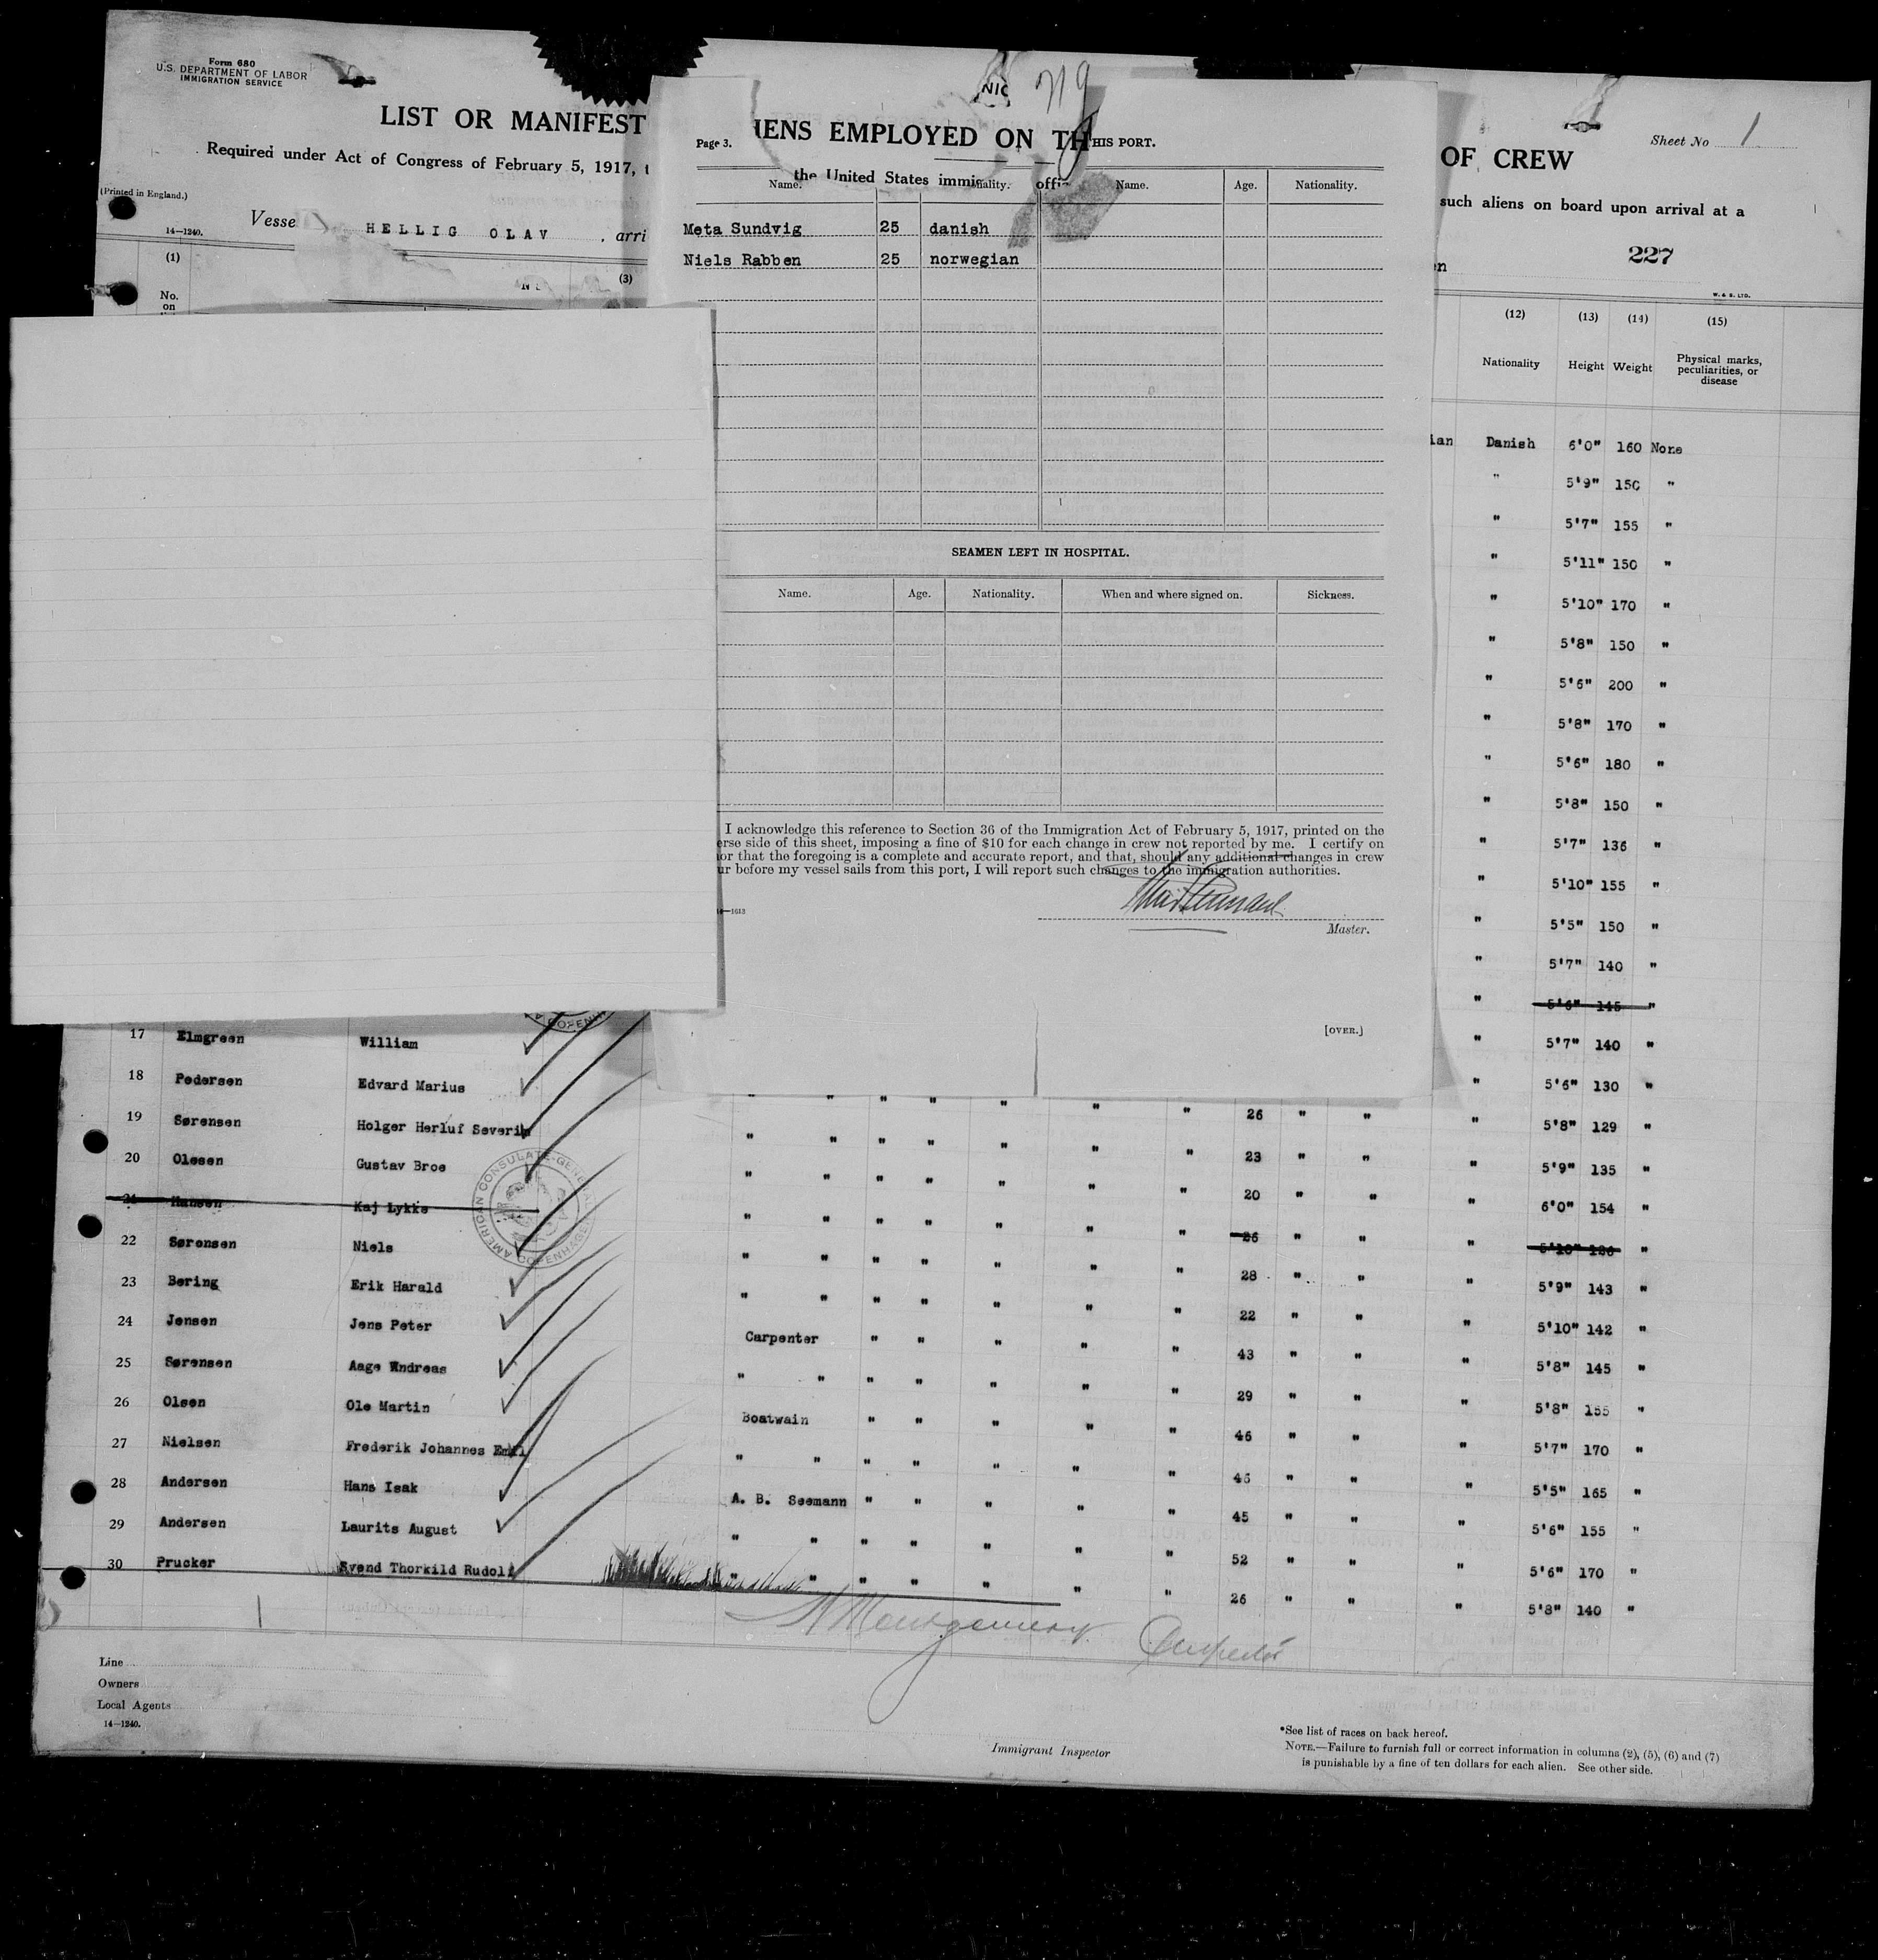 Form 680
U.S. DEPARTMENT OF LABOR
IMMIGRATION SERVICE
LIST OR MANIFEST
Required under Act of Congress of February 5, 1917,
(Printed in England.)
14—1240.
Vesse HELLIG OLAV , arri
(1) (3)
No.
on
NIC 719
IENS EMPLOYED ON TH
Page 3. HIS PORT.
the United States immi offi
Name. ality. Name. Age. Nationality.
Meta Sundvig 25 danish
Niels Rabben 25 norwegian
SEAMEN LEFT IN HOSPITAL.
Name. Age. Nationality. When and where signed on. Sickness.
I acknowledge this reference to Section 36 of the Immigration Act of February 5, 1917, printed on the
erse side of this sheet, imposing a fine of $10 for each change in crew not reported by me. I certify on
or that the foregoing is a complete and accurate report, and that, should any additional changes in crew
ur before my vessel sails from this port, I will report such changes to the immigration authorities.
—1613
Master.
[OVER.]
Sheet No 1
OF CREW
such aliens on board upon arrival at a
227
n
W. & S. LTD.
(12) (13) (14) (15)
Nationality Height Weight Physical marks,
peculiarities, or
disease
ian Danish 6'0" 160 None
" 5'9" 150 "
" 5'7" 155 "
" 5'11" 150 "
" 5'10" 170 "
" 5'8" 150 "
" 5'6" 200 "
" 5'8" 170 "
" 5'6" 180 "
" 5'8" 150 "
" 5'7" 136 "
" 5'10" 155 "
" 5'5" 150 "
" 5'7" 140 "
" 5'6" 145 "
" 5'7" 140 "
17 Elmgreen William " 5'6" 130 "
18 Pedersen Edvard Marius " " " " " " " 26 " " " 5'8" 129 "
19 Sørensen Holger Herluf Severin " " " " " " " 23 " " " 5'9" 135 "
20 Olesen Gustav Broe " " " " " " " 20 " " " 6'0" 154 "
21 Hansen Kaj Lykke " " " " " " " 26 " " " 5'10" 126 "
22 Sørensen Niels " " " " " " " 28 " " " 5'9" 143 "
23 Bering Erik Harald " " " " " " " 22 " " " 5'10" 142 "
24 Jensen Jens Peter Carpenter " " " " " 43 " " " 5'8" 145 "
25 Sørensen Aage Wndreas " " " " " " " 29 " " " 5'8" 155 "
26 Olsen Ole Martin Boatwain " " " " " 46 " " " 5'7" 170 "
27 Nielsen Frederik Johannes Emil " " " " " " " 46 " " " 5'5" 165 "
28 Andersen Hans Isak A. B. Seemann " " " " " 45 " " " 5'6" 155 "
29 Andersen Laurits August " " " " " " " 52 " " " 5'6" 170 "
30 Prucker Svend Thorkild Rudolf " " " " " " " 26 " " " 5'8" 140 "
AMERICAN CONSULATE-GENERAL COPENHAGEN
Montgomery Inspector
Line
Owners
Local Agents
14—1240.
Immigrant Inspector
*See list of races on back hereof.
NOTE.—Failure to furnish full or correct information in columns (2), (5), (6) and (7)
is punishable by a fine of ten dollars for each alien. See other side.